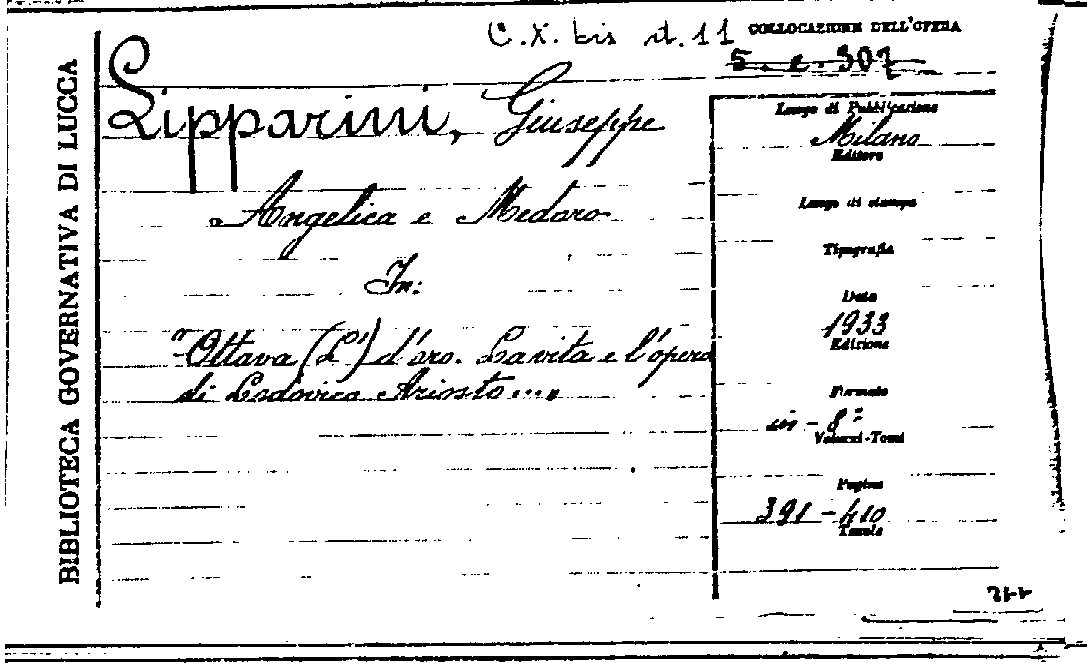 C. X. bis d. 11
COLLOCAZIONE DELL'OPERA
5. e. 307
BIBLIOTECA GOVERNATIVA DI LUCCA
Lipparini, Giuseppe
Angelica e Medoro
In:
"Ottava (L') d'oro. La vita e l'opera
di Lodovico Ariosto....
Luogo di Pubblicazione
Milano
Editore
Luogo di stampa
Tipografia
Data
1933
Edizione
Formato
in-8º
Volumi-Tomi
Pagine
391-410
Tavole